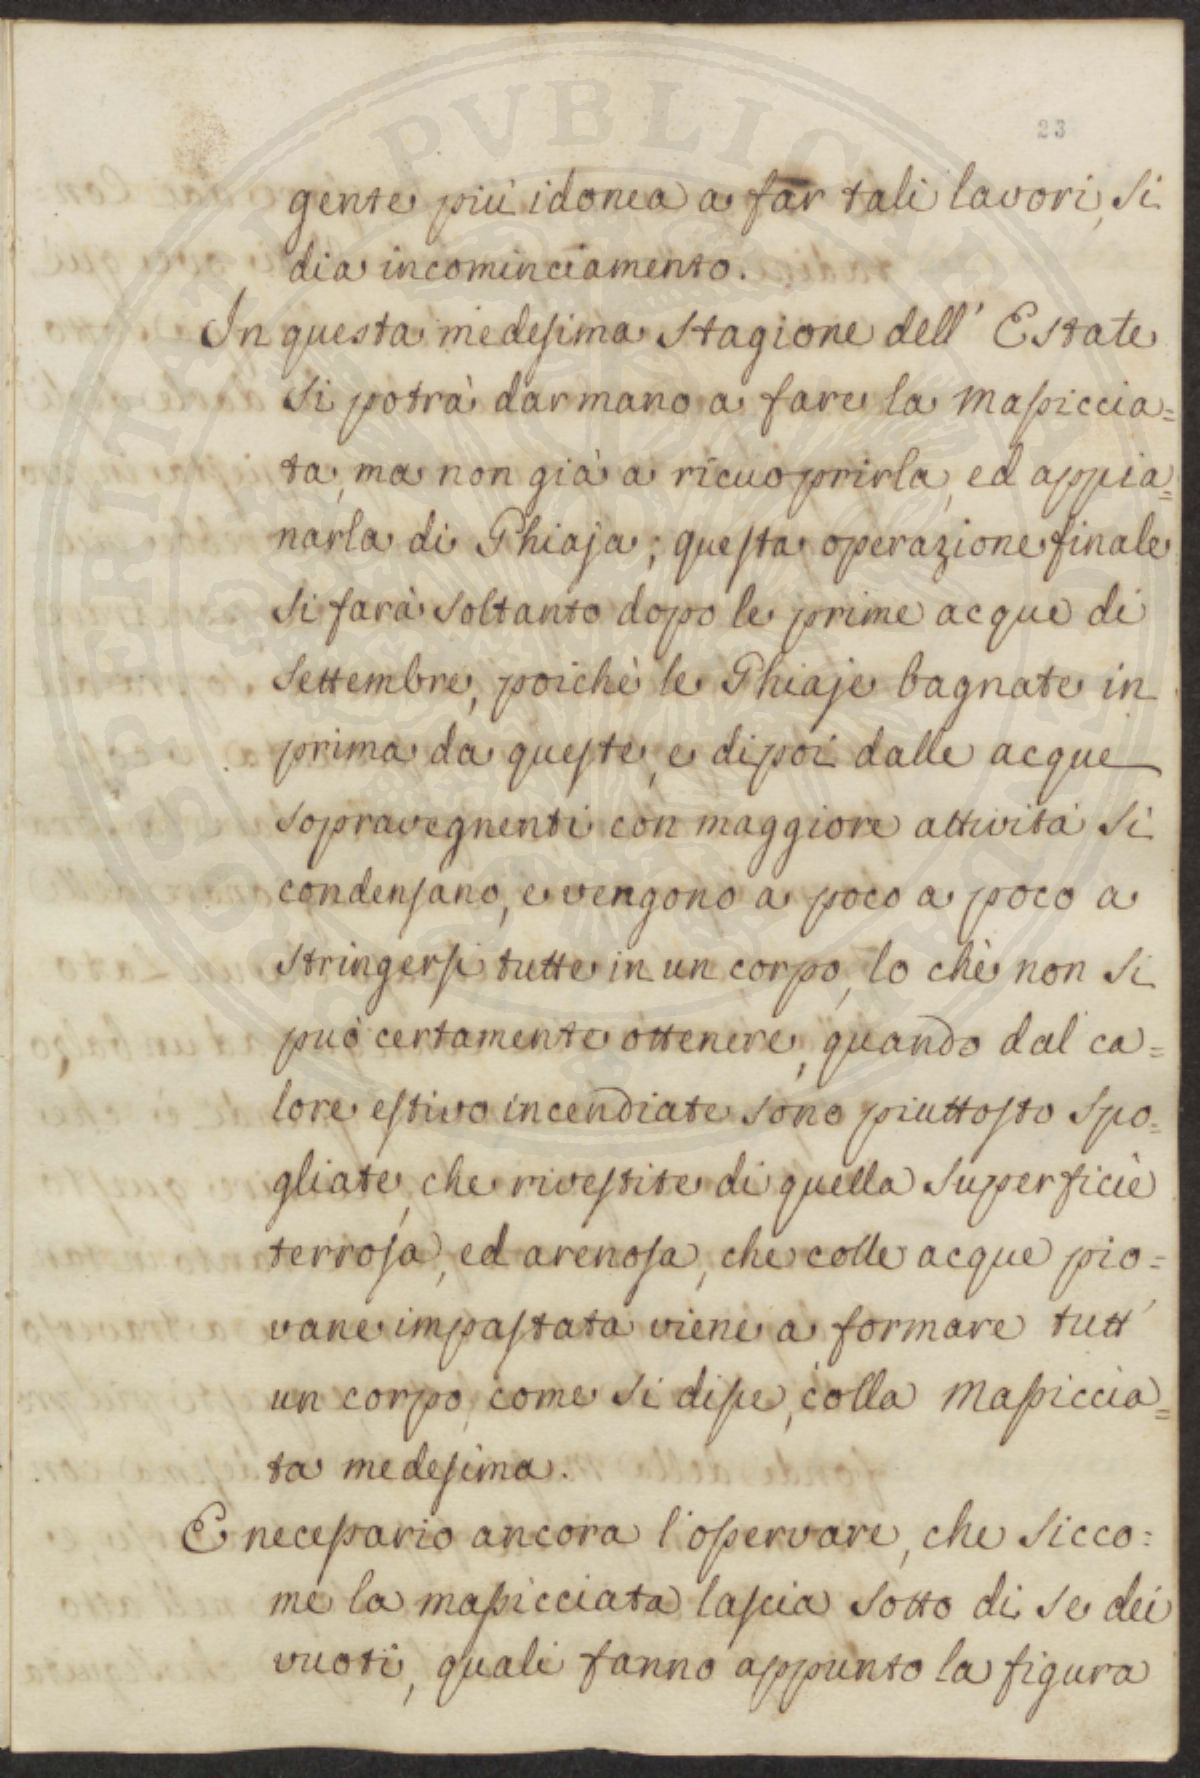 PVBLICAE
PROSPERITATI
23
gente più idonea a far tali lavori, si
dia incominciamento.
In questa medesima Stagione dell' Estate
si potrà dar mano a fare la Massiccia=
ta, ma non già a ricuoprirla, ed appia=
narla di Ghiaja; questa operazione finale
si farà soltanto dopo le prime acque di
Settembre, poichè le Ghiaje bagnate in
prima da queste, e dipoi dalle acque
sopravegnenti con maggiore attività si
condensano, e vengono a poco a poco a
stringersi tutte in un corpo, lo chè non si
può certamente ottenere, quando dal ca=
lore estivo incendiate sono piuttosto spo=
gliate, che rivestite di quella superficie
terrosa, ed arenosa, che colle acque pio=
vane impastata viene a formare tutt'
un corpo, come si disse, colla Massiccia=
ta medesima.
E necessario ancora l'osservare, che sicco=
me la massicciata lascia sotto di se dei
vuoti, quali fanno appunto la figura